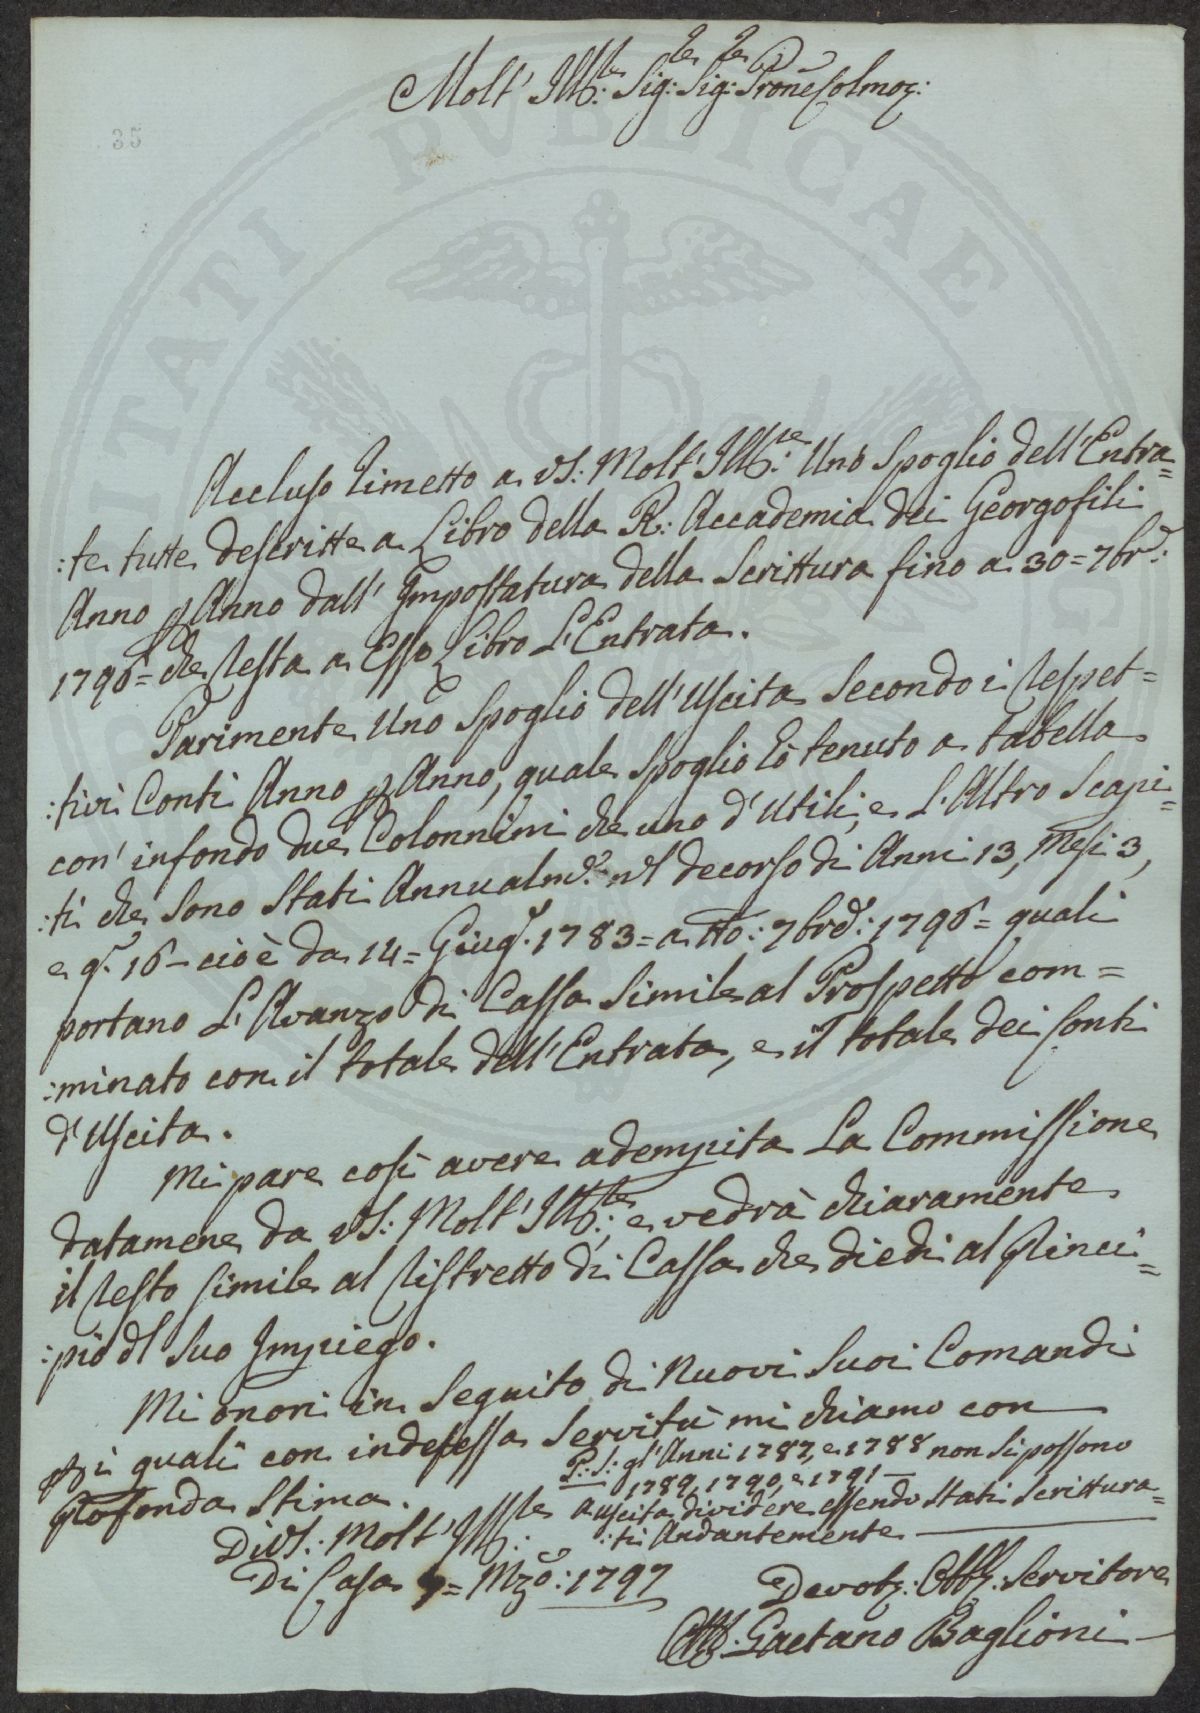 Molt' Ill:re Sig:re Sig:re Prone Colmo:
35
PROSPERITATI PVBLICAE AVG
Accluso Rimetto a VS: Molt' Ill:re Uno Spoglio dell'Entra=
:te tutte descritte a Libro della R: Accademia dei Georgofili
Anno p Anno dall' Impostatura della Scrittura fino a 30= 7bre:
1796= che Resta a Esso Libro L'Entrata.
Parimente Uno Spoglio dell'Uscita Secondo i Respet=
:tivi Conti Anno p Anno, quale Spoglio hò tenuto a tabella
con' infondo due Colonnini che uno d'Utili, e L'Altro Scapi=
:ti che Sono Stati Annualm:e nel decorso di Anni 13, Mesi 3,
e g.i 16- cioè da 14= Giug.o 1783= a tto: 7bre: 1796= quali
portano L'Avanzo di Cassa Simile al Prospetto com=
:minato con il totale dell'Entrata, e il totale dei Conti
d'Uscita.
Mi pare così avere adempita La Commissione
datamene da VS: Molt' Ill:re; e vedrà chiaramente
il Resto Simile al Ristretto di Cassa che diedi al Princi=
:pio del Suo Impiego.
Mi onori in Seguito di Nuovi Suoi Comandi
p i quali con indefessa Servitù mi chiamo con
Profonda Stima.
P:S: gl'Anni 1787, e 1788 non Si possono
1789, 1790, e 1791 —
a uscita dividere essendo Stati Scrittura=
:ti Andantemente
Di VS: Molt' Ill:re
Di Casa 7= Mzo: 1797
Devot: Obb: Servitore
Gaetano Baglioni